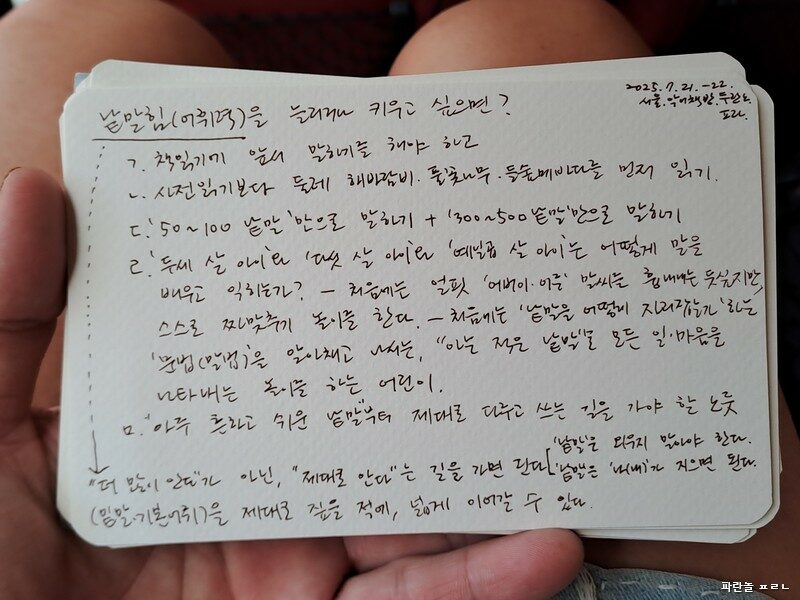 2025.7.21.-22.
서울. 악어책방. 두런두런
ㅍㄹㄴ
낱말힘(어휘력)을 늘리거나 키우고 싶으면?
ㄱ. 책읽기에 앞서 말하기를 해야 하고
ㄴ. 사전읽기보다 둘레 해바람비·풀꽃나무·들숲메바다를 먼저 읽기.
ㄷ. '50~100 낱말'만으로 말하기 + '300~500 낱말'만으로 말하기
ㄹ. '두세 살 아이'와 '다섯 살 아이'와 '예닐곱 살 아이'는 어떻게 말을
배우고 익히는가? — 처음에는 얼핏 '어버이·이웃' 말씨는 흉내내는 듯싶지만,
스스로 짜맞추기 놀이를 한다. — 처음에는 '낱말을 어떻게 자리잡는가' 하는
'문법(말법)'을 알아채고 나서는, "아는 적은 낱말"로 모든 일·마음을
나타내는 놀이를 하는 어린이.
ㅁ. "아주 흔하고 쉬운 낱말"부터 제대로 다루고 쓰는 길을 가야 할 노릇
"더 많이 안다"가 아닌, "제대로 안다"는 길을 가면 된다.
'낱말'은 외우지 말아야 한다.
'낱말'은 '내가' 지으면 된다.
(밑말·기본어휘)을 제대로 짚을 적에, 넓게 이어갈 수 있다.
파란놀 ㅍㄹㄴ